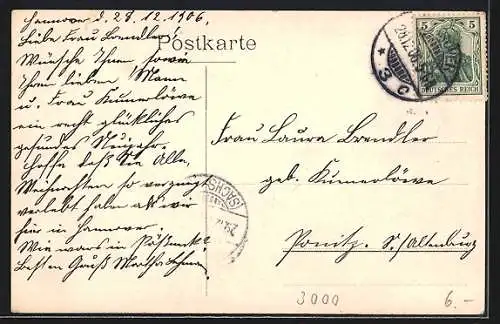 Hannover d. 28.12.1906.
Liebe Frau Brendler!
Wünsche Ihnen sowie
Ihrem lieben Mann
u. Frau Kumerlöwe
ein recht glückliches
gesundes Neujahr.
Hoffe daß Sie Alle,
Weihnachten so vergnügt
verlebt haben als wir
hier in Hannover.
Wie wars in
Besten Gruß Martha
Postkarte
Frau Laura Brendler
geb. Kumerlöwe
Ponitz. S./Altenburg
5 5
DEUTSCHES REICH
28.12.06
* 3 C
(SACHS
3000
6.-